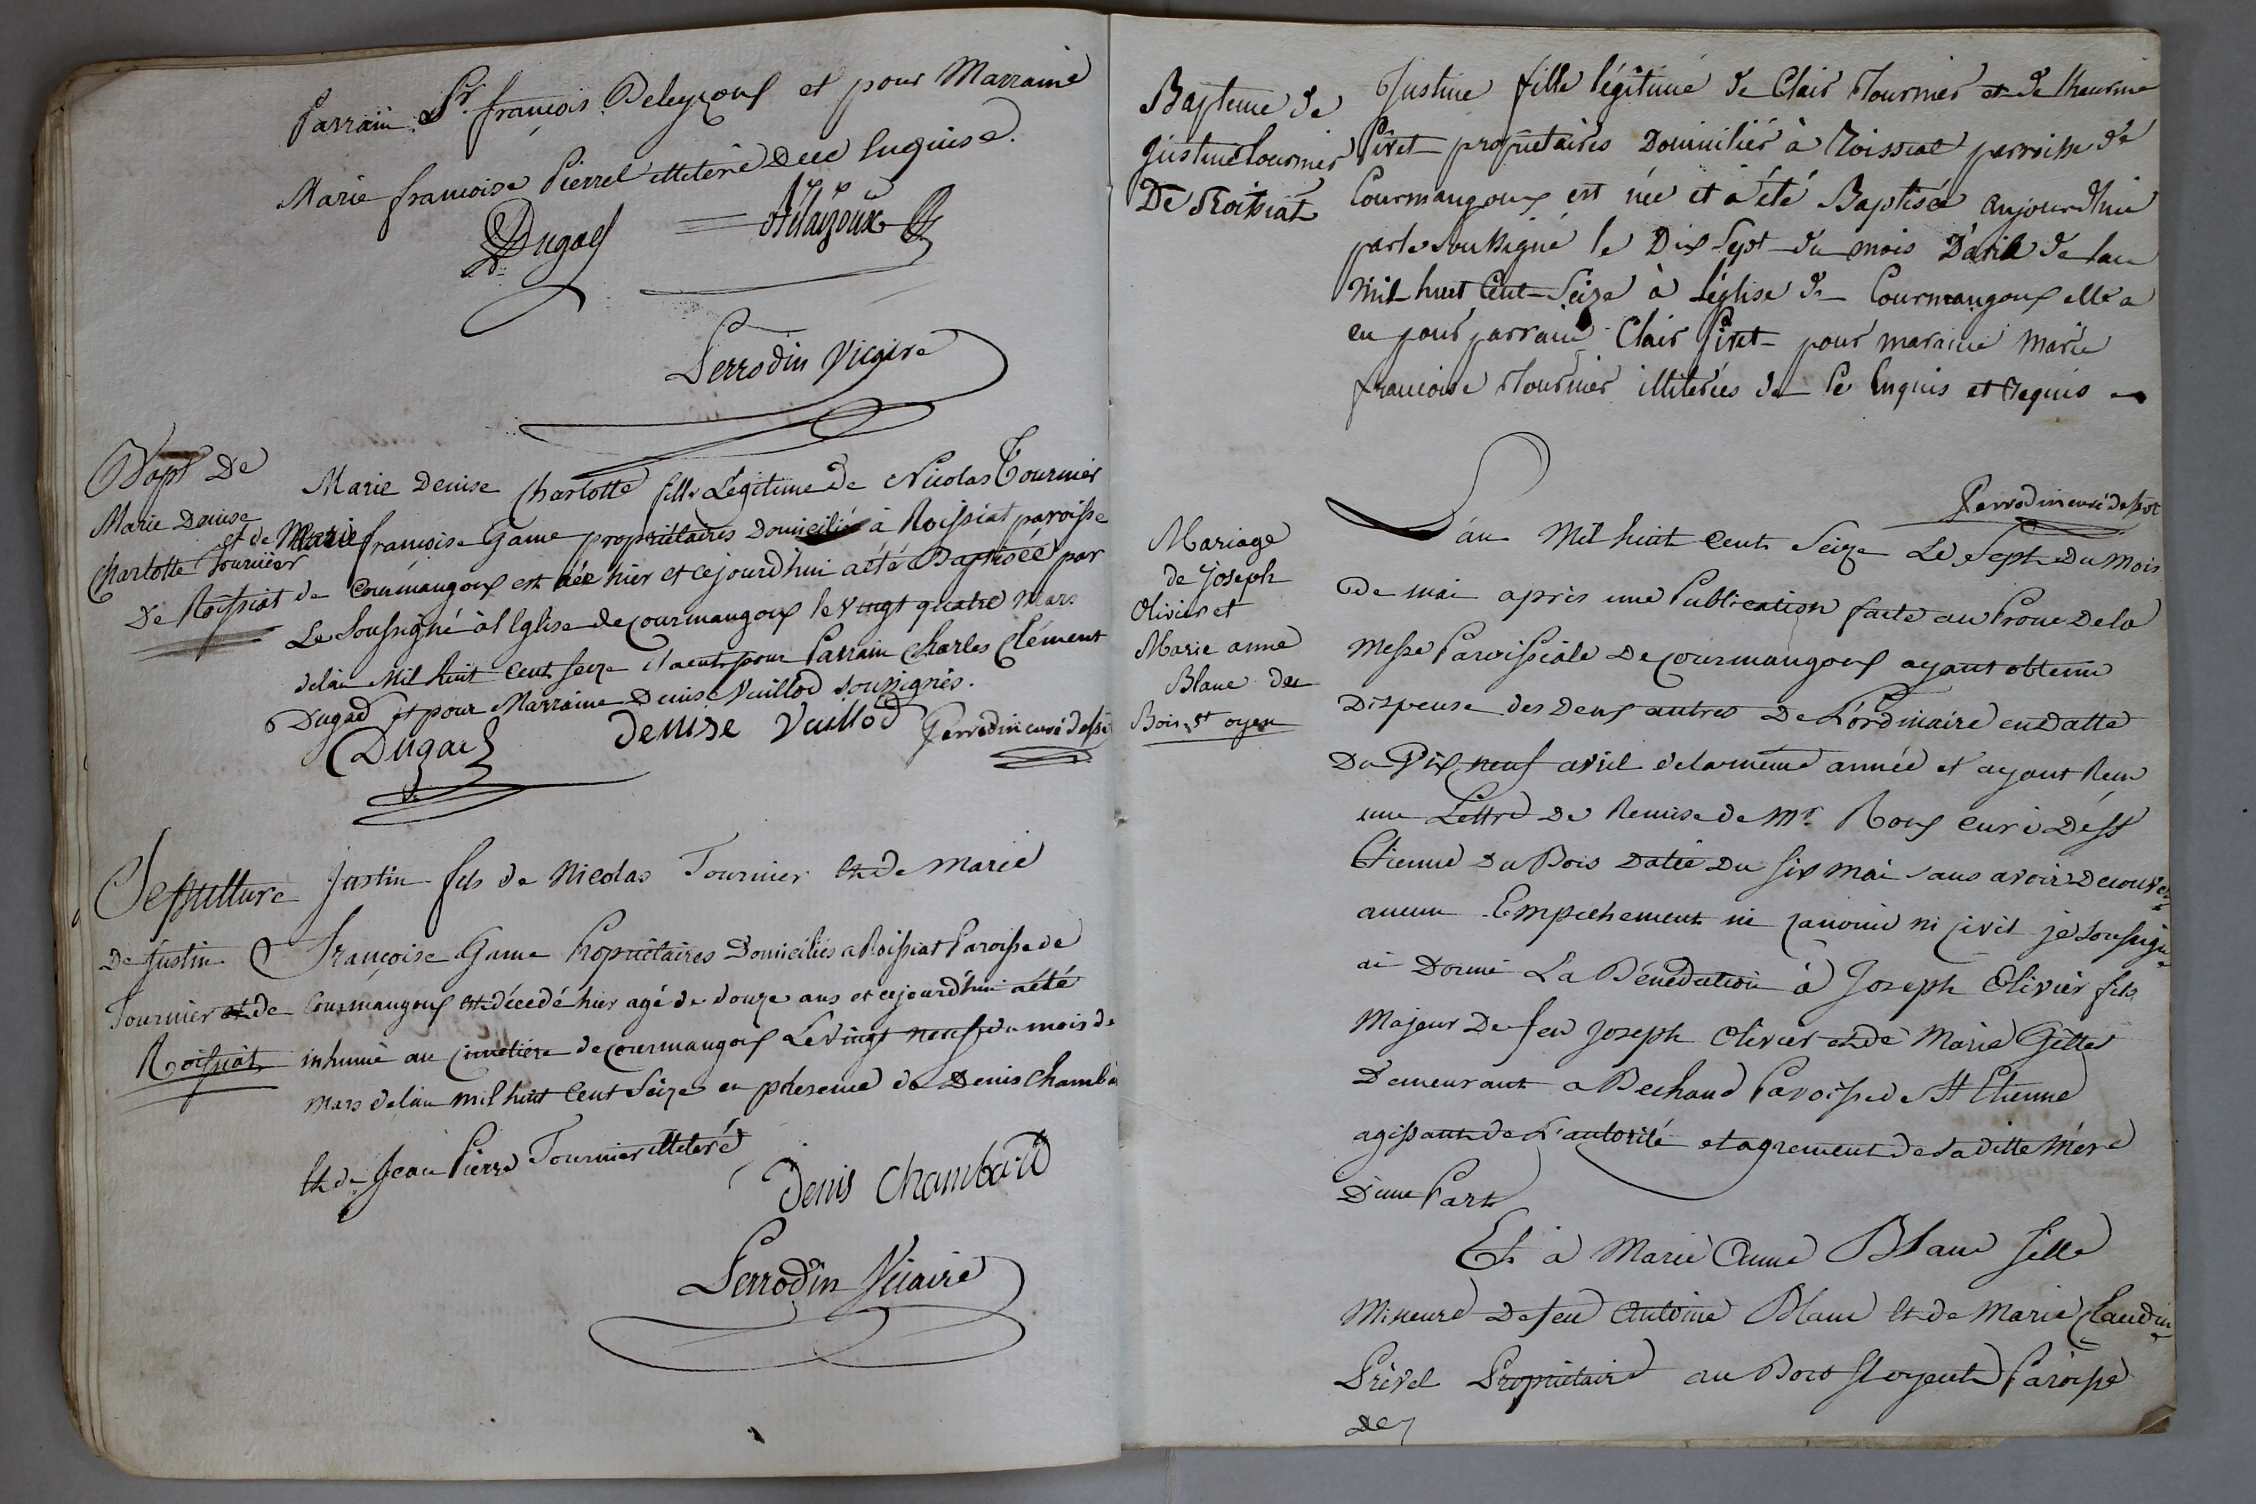 Parrain Sr. françois Delayzoux et pour Marraine
Marie françoise Pierrel illiterée Due Enquise.
Dugas Delayzoux
Perrodin Vicaire
Bapt De
Marie Denise
Charlotte Tournier
De Roissiat
Marie Denise Charlotte fille Légitime de Nicolas Tournier
et de Marie françoise Game propriétaires Domiciliés à Roissiat paroisse
de Courmangoux est née hier et cejourd'hui a été Baptisée par
Le Soussigné à l'Eglise de Courmangoux le vingt quatre Mars
de l'an Mil huit Cent seize il a eu pour Parrain Charles Clément
Dugad et pour Marraine Denise Vuillod soussignés.
Dugas Denise Vuillod Perrodin curé
Sepulture
De Justin
Tournier de
Roissiat
Justin fils de Nicolas Tournier Et de Marie
Françoise Game Propriétaires Domiciliés a Roissiat Paroisse de
Courmangoux est décedé hier agé de douze ans et cejourd'hui a été
inhumé au cimetiere de courmangoux Le vingt neuf du mois de
Mars de l'an mil huit Cent Seize en presence de Denis Chambar
Et de Jean Pierre Tournier illiteré
Denis Chambard
Perrodin Vicaire
Bapteme de
Justine Tournier
De Roissiat
Justine fille légitime de Clair Tournier et de
Pivet propriétaires Domiciliés à Roissiat parroisse de
Courmangoux est née et a été Baptisée aujourdhui
par le soussigné le Dix Sept du mois D'avril de l'an
Mil huit Cent Seize à L'église de Courmangoux elle a
eu pour parrain Clair Pivet pour maraine Marie
francoise Tournier illiterées de ce Enquis et Requis
Perrodin curé
Mariage
de Joseph
Olivier et
Marie anne
Blanc du
Bois St oyen
L'an Mil huit Cent Seize Le Sept du Mois
de mai après une Publication faite au Prone De la
Messe Paroissiale De courmangoux ayant obtenu
Dispense des Deux autres De L'ordinaire en Datte
Du Dix neuf avril de la même année et ayant Reçu
une Lettre De Remise de Mr. Roux curé De St
Etienne Du Bois Datée Du six mai sans avoir Decouvert
aucun Empechement ni canonic ni civil je Soussigné
ai Donné La Bénédiction à Joseph Olivier fils
Majeur De feu Joseph Olivier et de Marie Gillet
Demeurant a Bechaud Paroisse de St Etienne
agissant de L'autorité et agrement de sa ditte Mére
D'une Part
Et à Marie Anne Blanc fille
Mineure De feu Antoine Blanc Et de Marie Claudine
Prével Propriétaire au Bois St oyent Paroisse
De